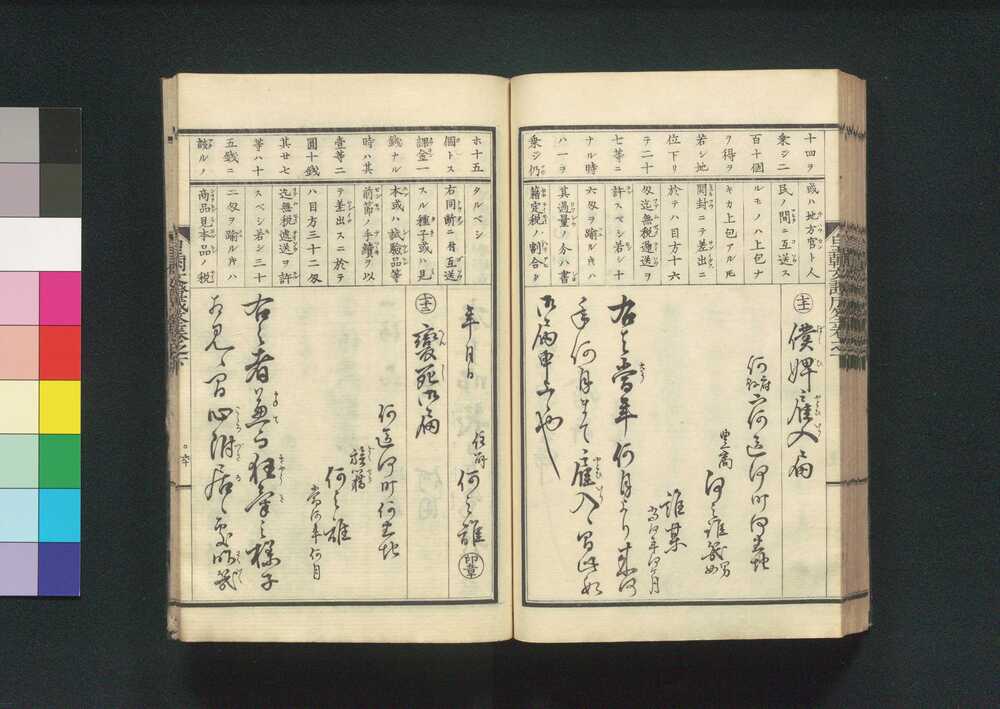 十四ヲ
乗シ二
百十個
ヲ得ヲ
若シ地
位下リ
テ二十
七等ニ
ナル時
ハ一ヲ
乗シ仍
或ハ地方官ト人
民ノ間ニ互送ス
ルモノハ上包ナ
キカ上包アル𪜈
開封ニテ差出ニ
於テハ目方十六
匁迄無税逓送ヲ
許スベシ若シ十
六匁ヲ踰ル𪜈ハ
其過量ノ分ハ書
籍定税ノ割合タ
僕婢雇入届
何府何縣下何区何町何番地
誰某
右之當年何月より来何
年何月まて雇入候間此如
御届申上候也
ホ十五
個トス
課金一
錢ナル
時ハ其
壹等二
圓十錢
其廿七
等ハ十
五錢ニ
該ルノ
タルベシ
右同断ニ付互送
スル種子或ハ見
本或ハ試驗品等
前節ノ手續ヲ以
テ差出スニ於テ
ハ目方三十二匁
迄無税逓送ヲ許
スベシ若シ三十
二匁ヲ踰ル𪜈ハ
商品見本品ノ税
年月日
何之誰 印章
變死御届
何区何町何番地
族籍
何之誰
當何年何月
右之者兼而狂氣之様子
相見へ候間心附居候處昨幾